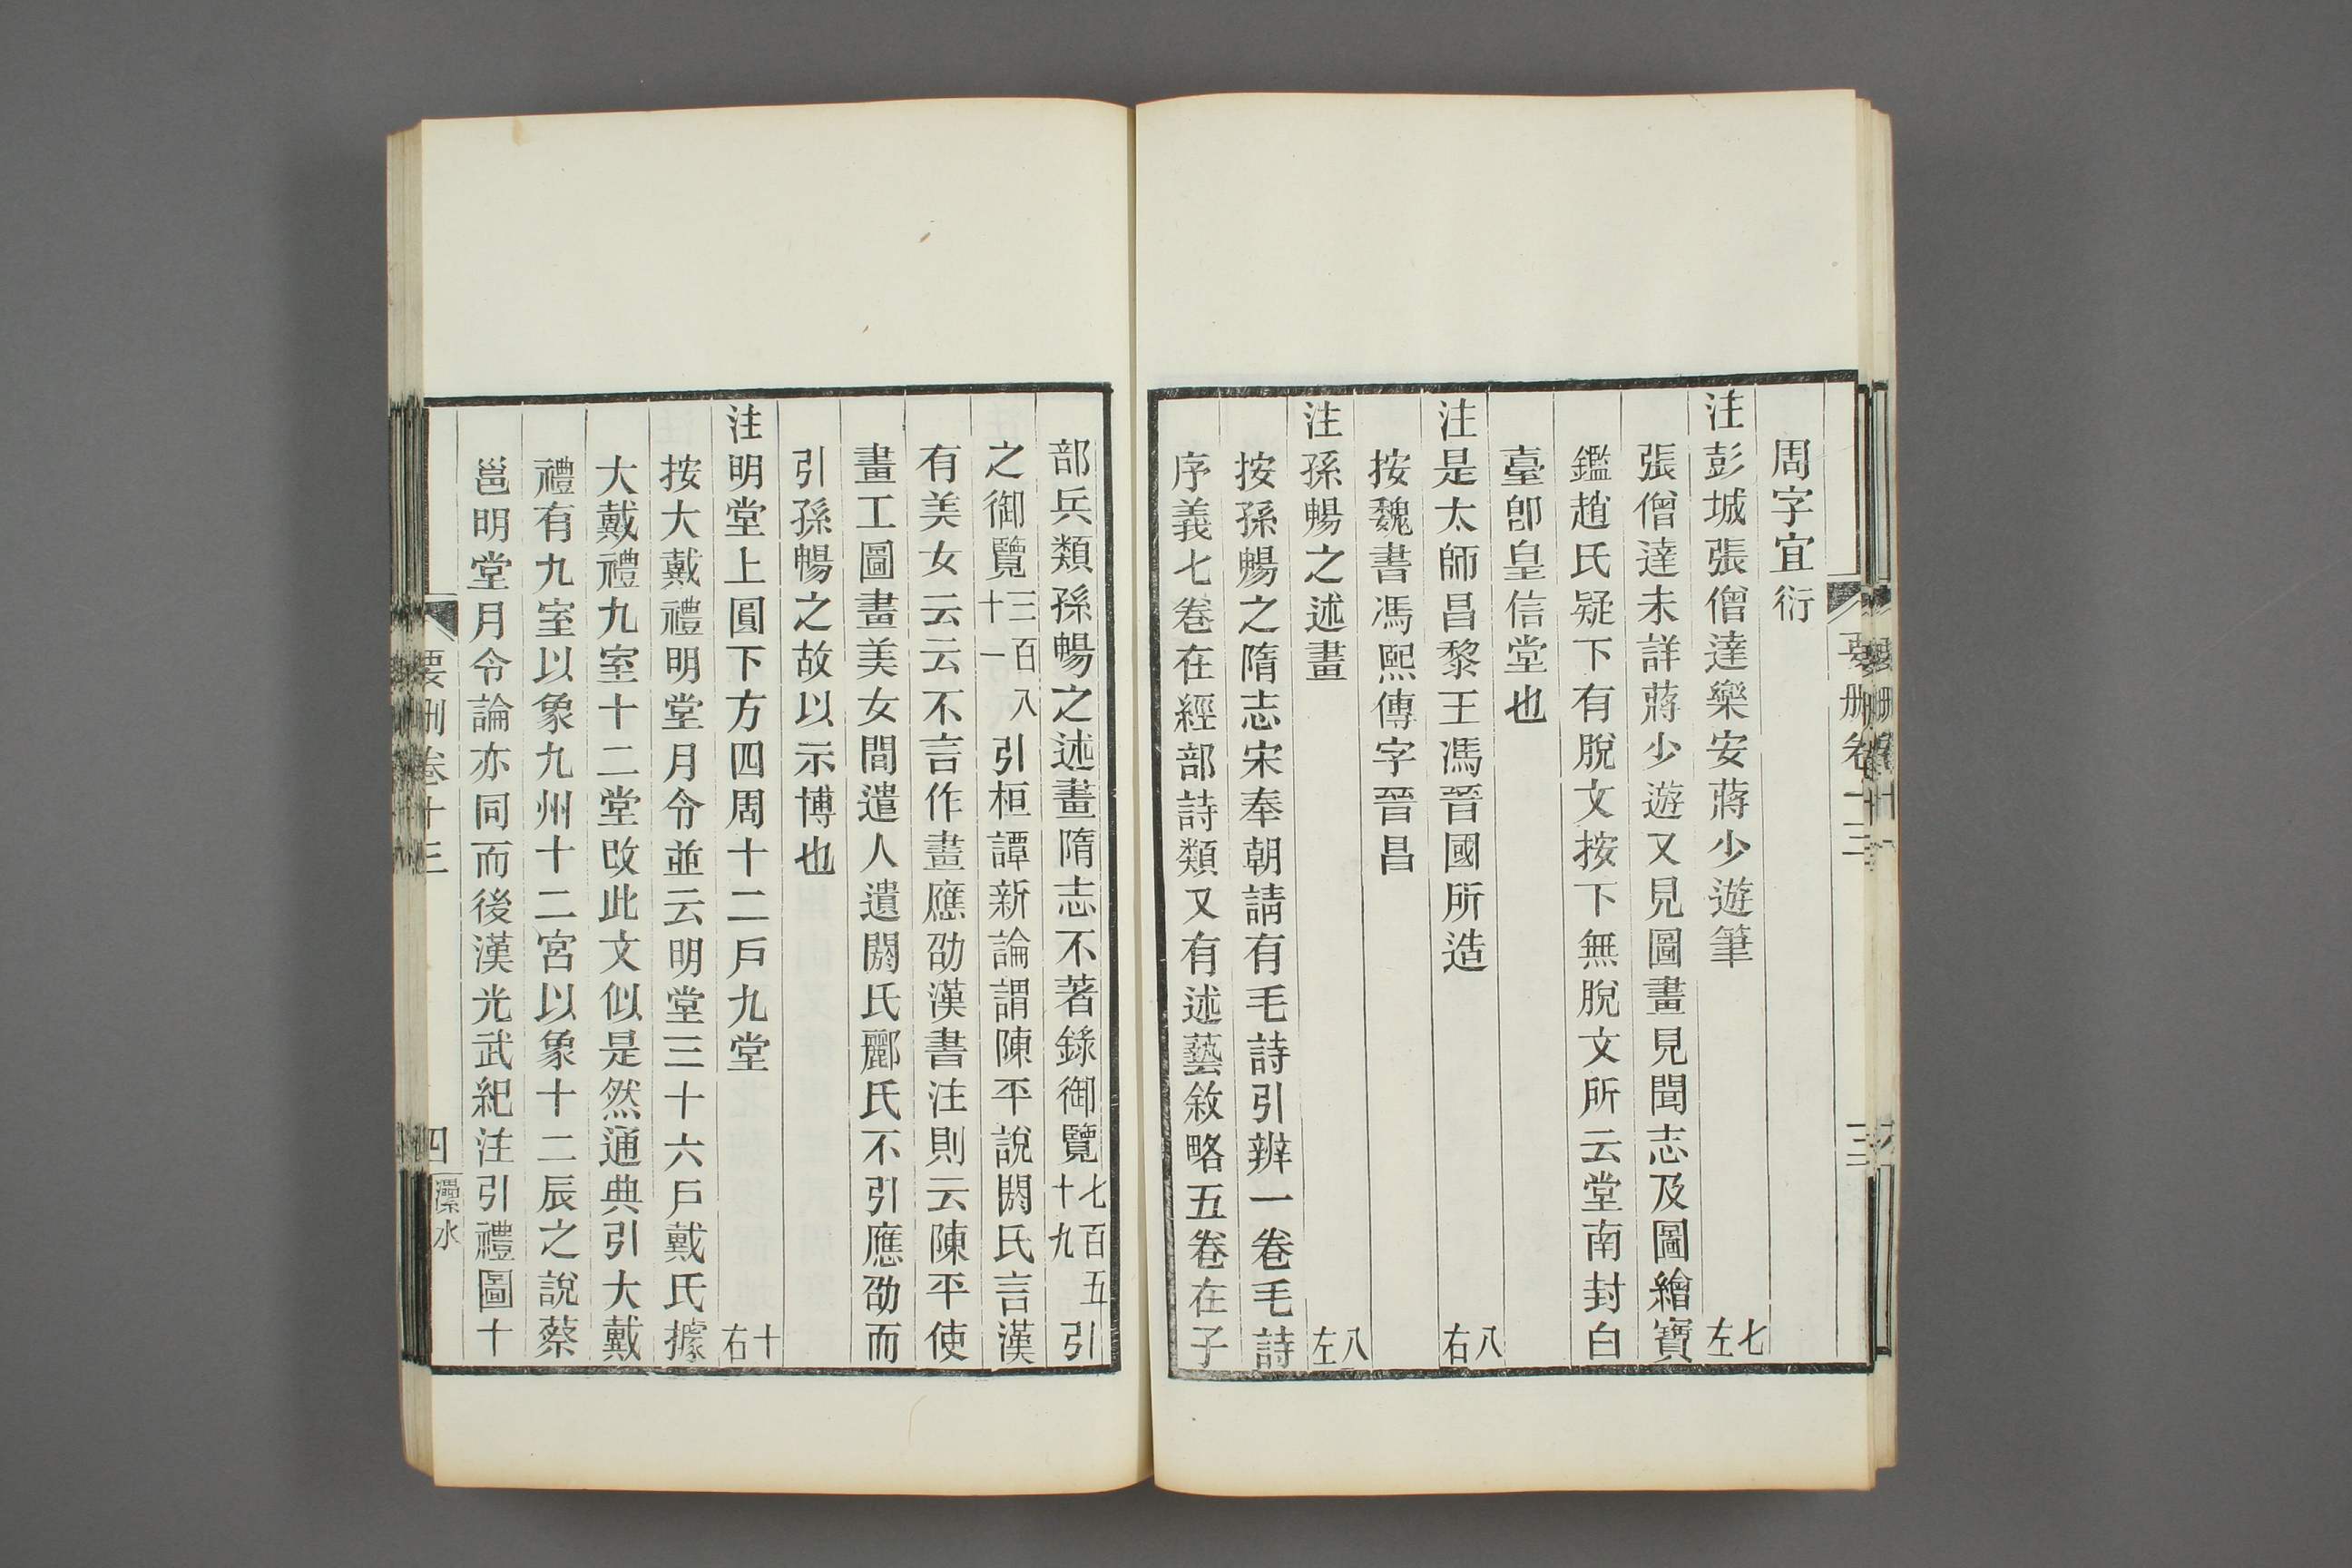 周字宜衍
注彭城張僧達樂安蔣少遊筆 七左
張僧達未詳蔣少遊又見圖畫見聞志及圖繪寶
鑑趙氏疑下有脫文按下無脫文所云堂南封白
臺卽皇信堂也
注是太師昌黎王馮晉國所造 八右
按魏書馮熙傳字晉昌
注孫暢之述畫 八左
按孫暢之隋志宋奉朝請有毛詩引辨一卷毛詩
序義七卷在經部詩類又有述藝敘略五卷在子
部兵類孫暢之述畫隋志不著錄御覽七百五十九引
之御覽三百八十一引桓譚新論謂陳平說閼氏言漢
有美女云云不言作畫應劭漢書注則云陳平使
畫工圖畫美女間遣人遺閼氏酈氏不引應劭而
引孫暢之故以示博也
注明堂上圓下方四周十二戶九堂 十右
按大戴禮明堂月令並云明堂三十六戶戴氏據
大戴禮九室十二堂改此文似是然通典引大戴
禮有九室以象九州十二宮以象十二辰之說蔡
邕明堂月令論亦同而後漢光武紀注引禮圖十
要刪卷十三
四
㶟水
要刪卷十三
三